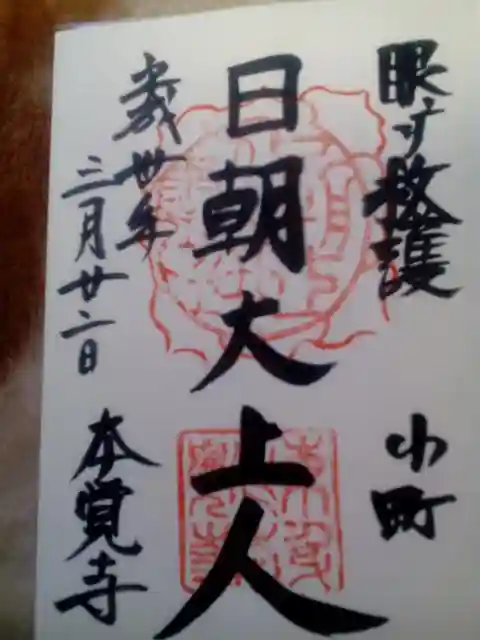 眼寸救護
小町
日朝大上人
平成廿年
三月廿二日
本覚寺